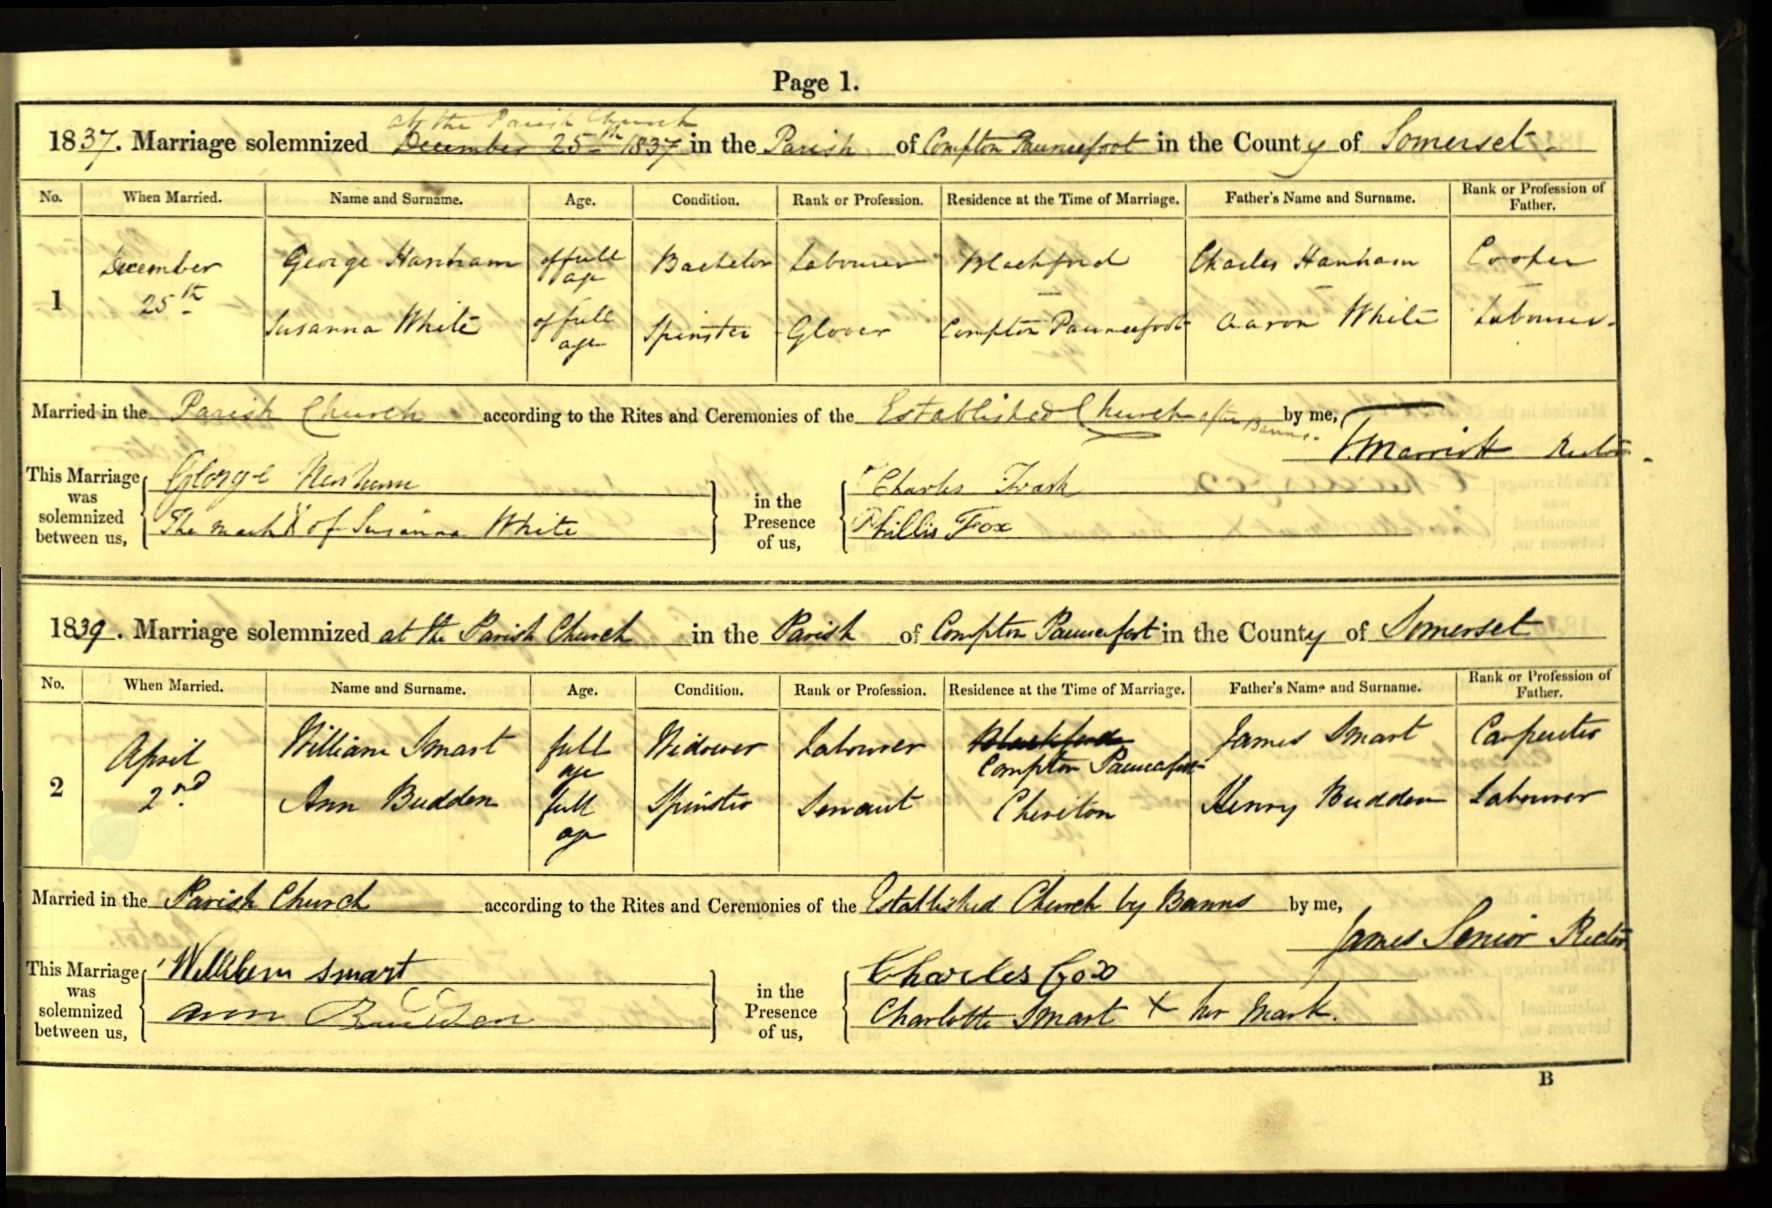 Page 1.
at the Parish Church
1837. Marriage solemnized December 25th 1837 in the Parish of Compton Pauncefoot in the County of Somerset
No. When Married. Name and Surname. Age. Condition. Rank or Profession. Residence at the Time of Marriage. Father's Name and Surname. Rank or Profession of Father.
1 December 25th George Hanham of full age Bachelor Labourer Blackford Charles Hanham Cooper
Susanna White of full age Spinster Glover Compton Pauncefoot Aaron White Labourer.
Married in the Parish Church according to the Rites and Ceremonies of the Established Church after Banns. by me,
J. Marriott Rector.
This Marriage was solemnized between us, George Hanham in the Presence of us, Charles Trask
The mark X of Susanna White Phillis Fox
1839. Marriage solemnized at the Parish Church in the Parish of Compton Pauncefoot in the County of Somerset
No. When Married. Name and Surname. Age. Condition. Rank or Profession. Residence at the Time of Marriage. Father's Name and Surname. Rank or Profession of Father.
2 April 2nd William Smart full age Widower Labourer Blackford Compton Pauncefoot James Smart Carpenter
Ann Budden full age Spinster Servant Cheriton Henry Budden Labourer
Married in the Parish Church according to the Rites and Ceremonies of the Established Church by Banns by me,
James Senior Rector
This Marriage was solemnized between us, William Smart in the Presence of us, Charles Cox
ann Budden Charlotte Smart X her Mark.
B